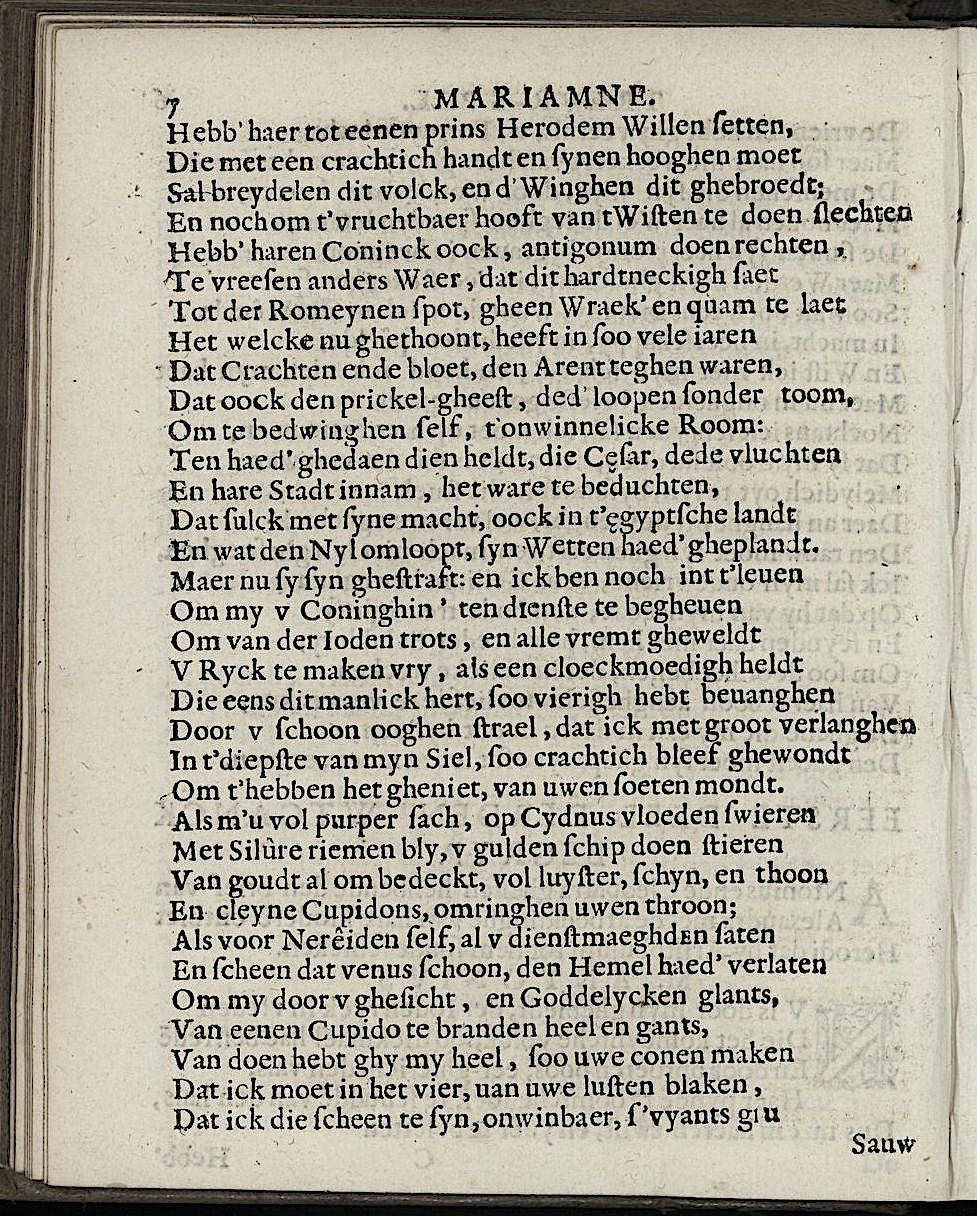 7 MARIAMNE.
Hebb' haer tot eenen prins Herodem Willen ſetten,
Die met een crachtich handt en ſynen hooghen moet
Sal breydelen dit volck, en d'Winghen dit ghebroedt;
En noch om t'vruchtbaer hooft van tWiſten te doen ſlechten
Hebb' haren Coninck oock, antigonum doen rechten,
Te vreeſen anders Waer, dat dit hardtneckigh ſaet
Tot der Romeynen ſpot, gheen Wraek' en quam te laet
Het welcke nu ghethoont, heeft in ſoo vele iaren
Dat Crachten ende bloet, den Arent teghen waren,
Dat oock den prickel-gheeſt, ded' loopen ſonder toom,
Om te bedwinghen ſelf, t'onwinnelicke Room:
Ten haed' ghedaen dien heldt, die Cęſar, dede vluchten
En hare Stadt innam, het ware te bĕduchten,
Dat ſulck met ſyne macht, oock in t'ęgyptſche landt
En wat den Nyl omloopt, ſyn Wetten haed' gheplandt.
Maer nu ſy ſyn gheſtraft: en ick ben noch int t'leuen
Om my v Coninghin' ten dienſte te begheuen
Om van der Ioden trots, en alle vremt gheweldt
V Ryck te maken vry, als een cloeckmoedigh heldt
Die eens dit manlick hert, ſoo vierigh hebt beuanghen
Door v ſchoon ooghen ſtrael, dat ick met groot verlanghen
In t'diepſte van myn Siel, ſoo crachtich bleef ghewondt
Om t'hebben het gheniet, van uwen ſoeten mondt.
Als m'u vol purper ſach, op Cydnus vloeden ſwieren
Met Silûre riemen bly, v gulden ſchip doen ſtieren
Van goudt al om bedeckt, vol luyſter, ſchyn, en thoon
En cleyne Cupidons, omringhen uwen throon;
Als voor Nerêiden ſelf, al v dienſtmaeghdEn ſaten
En ſcheen dat venus ſchoon, den Hemel haed' verlaten
Om my door v gheſicht, en Goddelycken glants,
Van eenen Cupido te branden heel en gants,
Van doen hebt ghy my heel, ſoo uwe conen maken
Dat ick moet in het vier, uan uwe luſten blaken,
Dat ick die ſcheen te ſyn, onwinbaer, ſ'vyants
Sauw